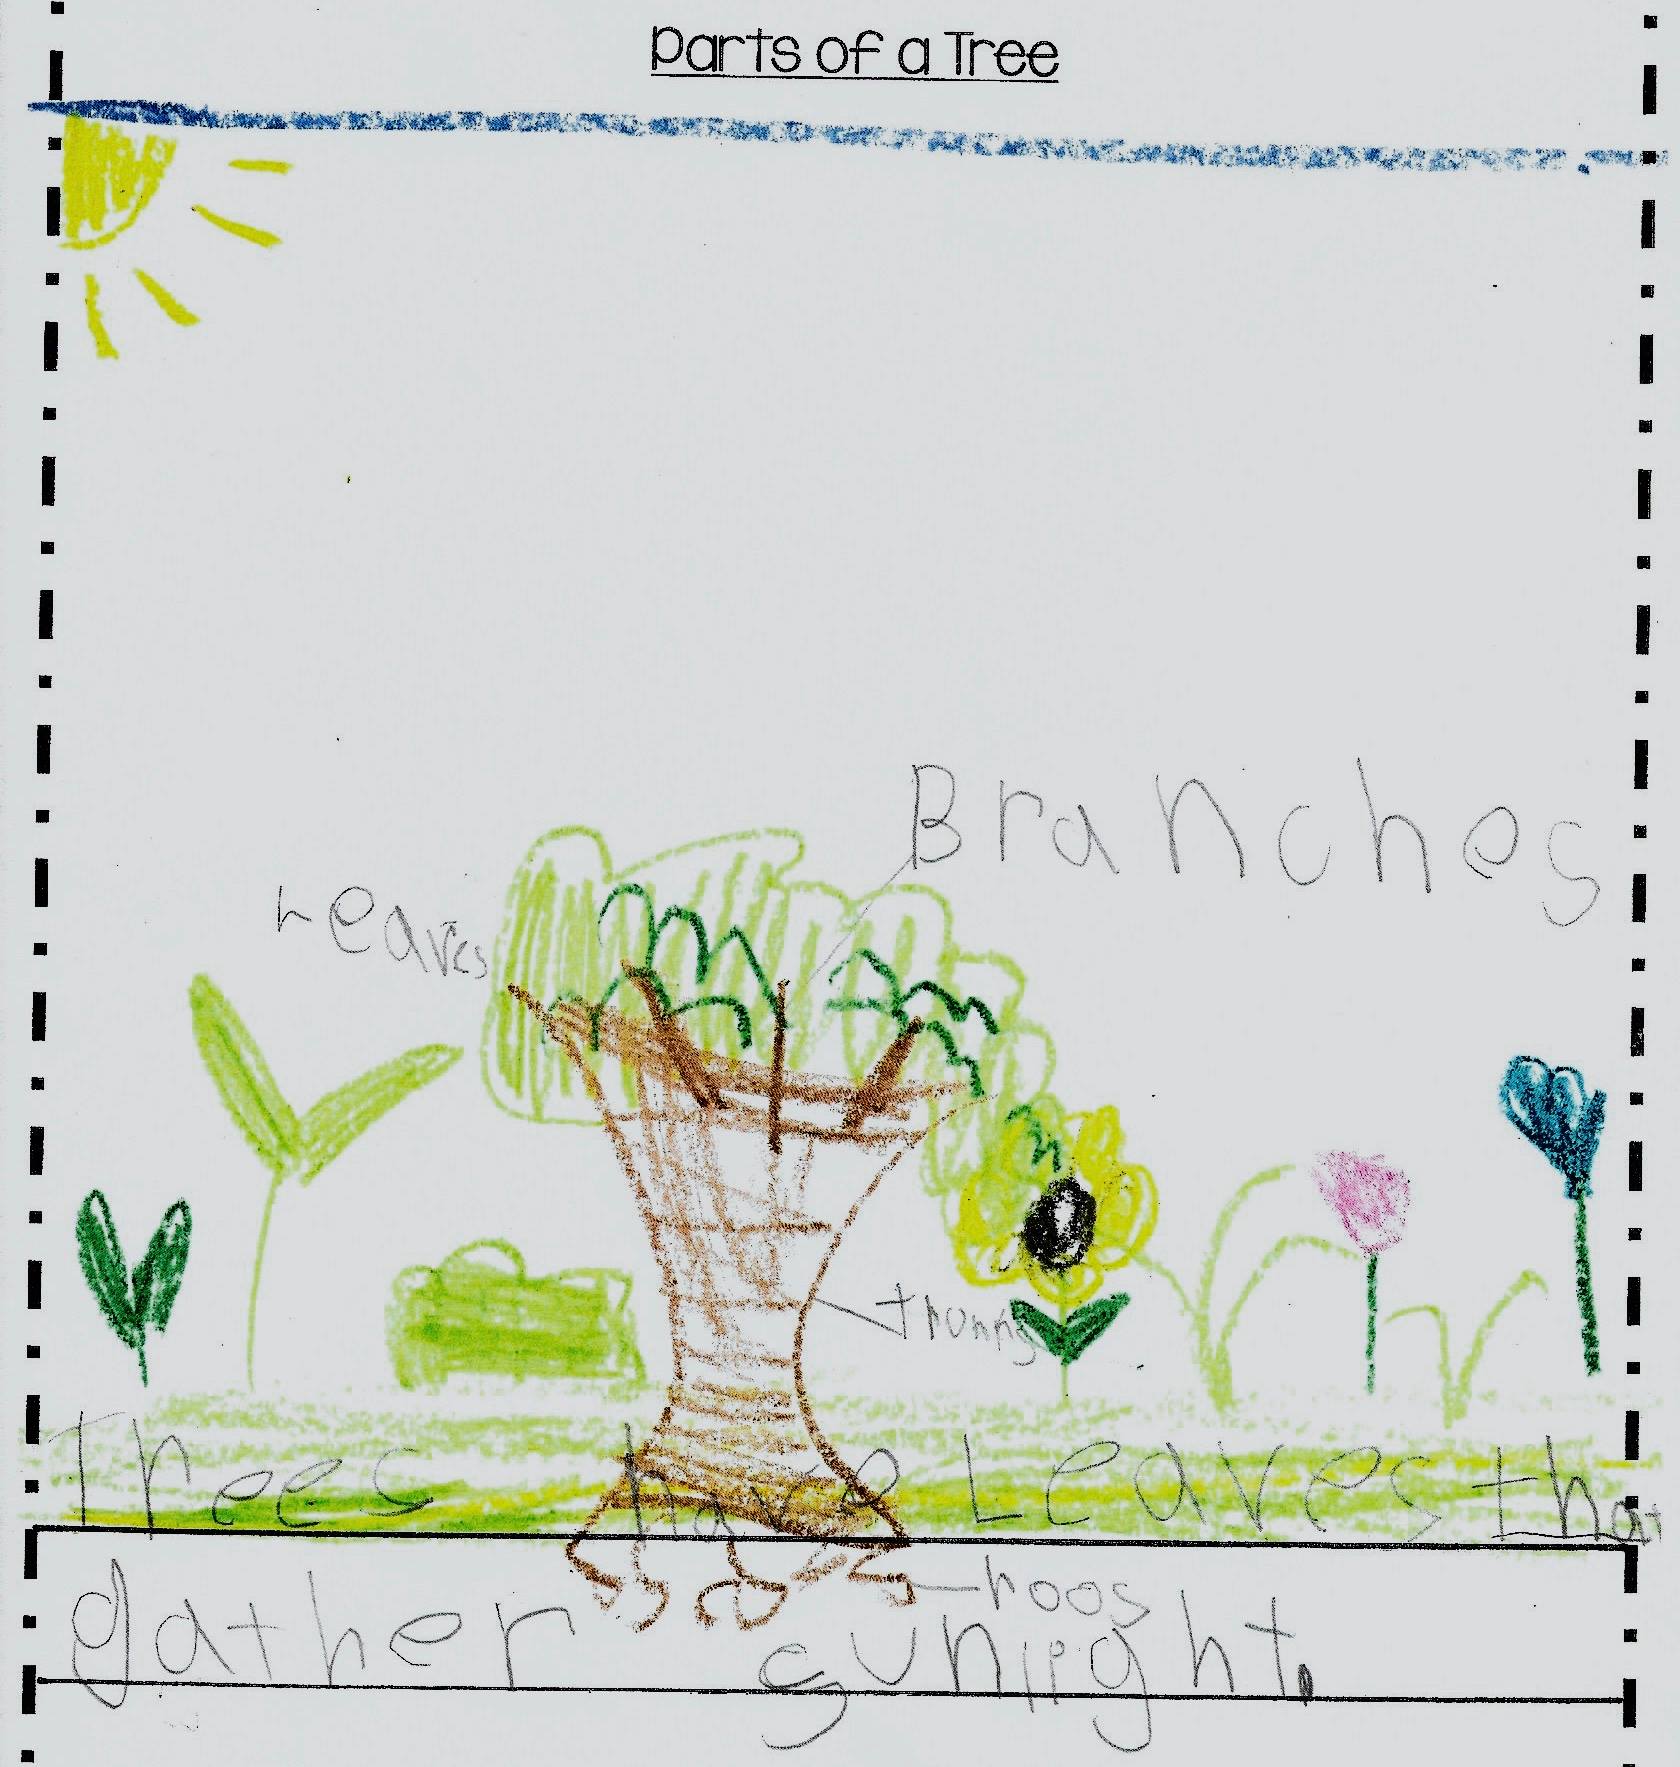 Parts of a Tree
Branches
Leaves
trunng
Trees have Leaves that
roos
gather sunlight.